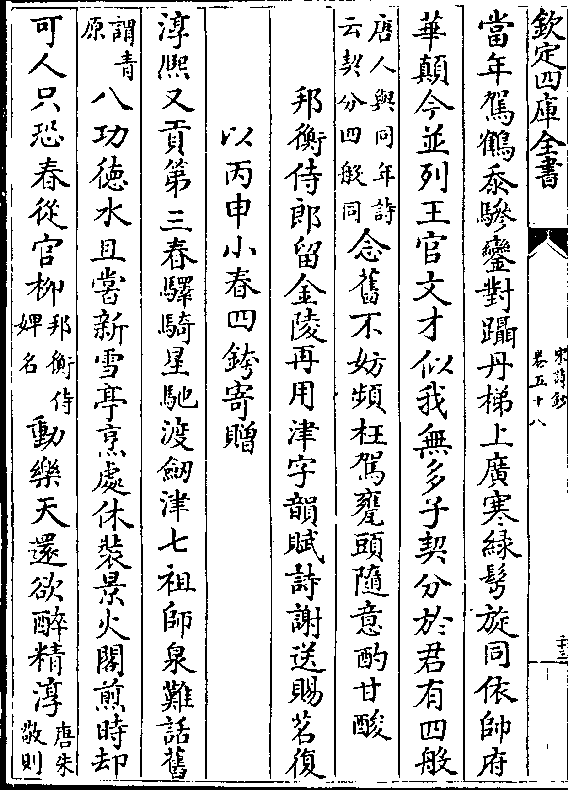 欽定四庫全書
宋詩鈔
卷五十八
當年駕鶴忝驂鸞對躡丹梯上廣寒綠鬂旋同依帥府
華顛今並列王官文才似我無多子契分於君有四般
唐人與同年詩
云契分四般同
念舊不妨頻枉駕甕頭隨意酌甘酸
邦衡侍郎留金陵再用津字韻賦詩謝送賜茗復
以丙申小春四銙寄贈
淳熙又貢第三春驛騎星馳渡劒津七祖師泉難話舊
謂青
原
八功徳水且嘗新雪亭烹處休裝景火閣煎時却
可人只恐春從官栁
邦衡侍
婢名
動樂天還欲醉精淳
唐朱
敬則